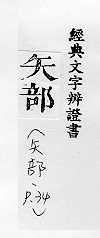 經典文字辨證書
矢部
（矢部
P.34）